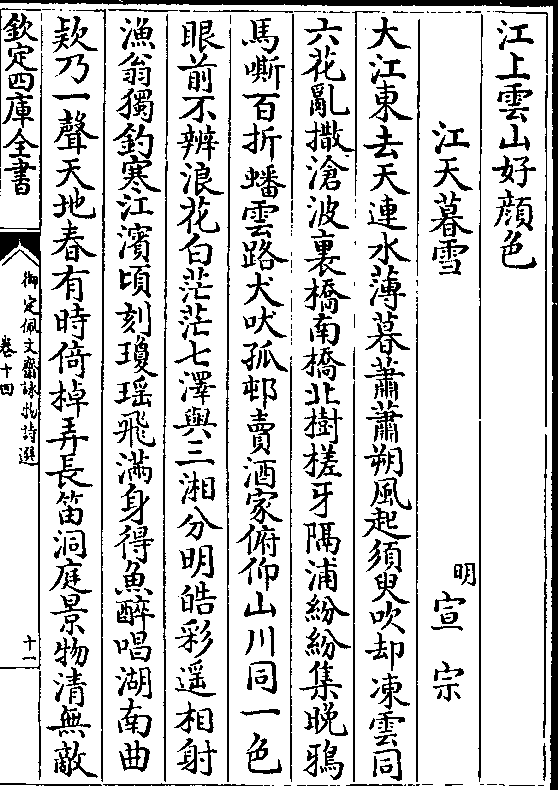 江上雲山好顔色
江天暮雪
明
宣宗
大江東去天連水薄暮蕭蕭朔風起須臾吹却凍雲同
六花亂撒滄波裏橋南橋北樹槎牙隔浦紛紛集晚鴉
馬嘶百折蟠雲路犬吠孤邨賣酒家俯仰山川同一色
眼前不辨浪花白茫茫七澤與三湘分明皓彩遥相射
漁翁獨釣寒江濱頃刻瓊瑶飛滿身得魚醉唱湖南曲
欵乃一聲天地春有時倚棹弄長笛洞庭景物清無敵
欽定四庫全書
御定佩文齋詠物詩選
卷十四
十一